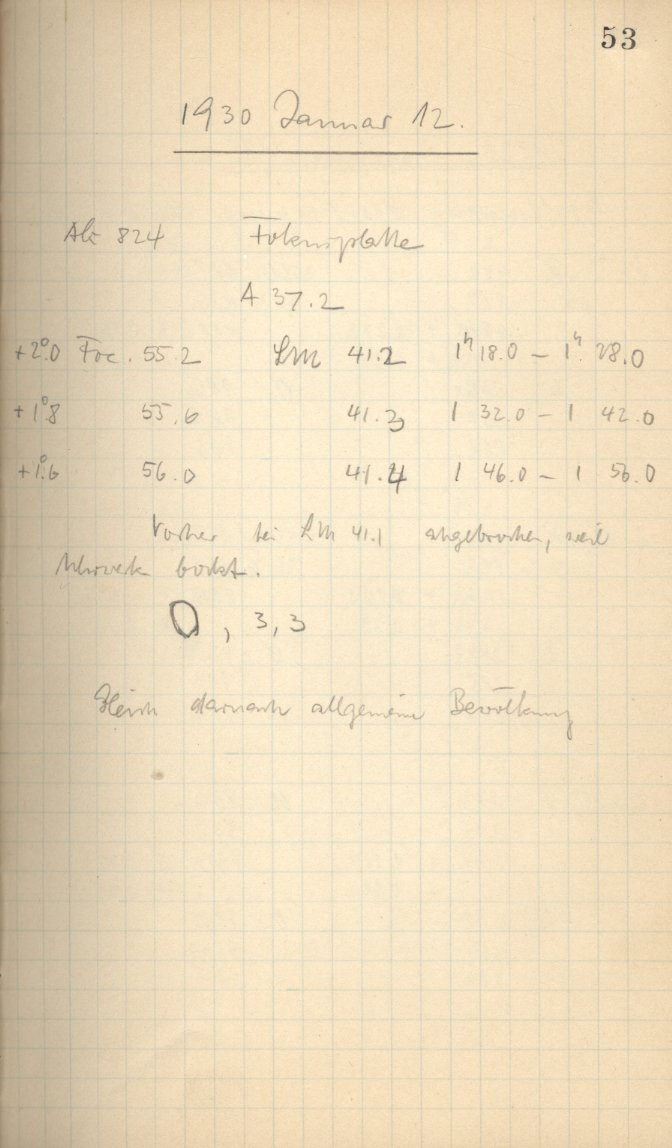 53
1930 Januar 12.
824 Fokusplatte
A 37.2
+2°.0 Foc. 55.2 LM 41.2 1ʰ 18.0 – 1ʰ 28.0
+1°.8 55.6 41.3 1 32.0 – 1 42.0
+1°.6 56.0 41.4 1 46.0 – 1 56.0
Vorher bei LM 41.1 abgebrochen, weil
Uhrwerk bockt.
0, 3, 3
Gleich darnach allgemeine Bewölkung